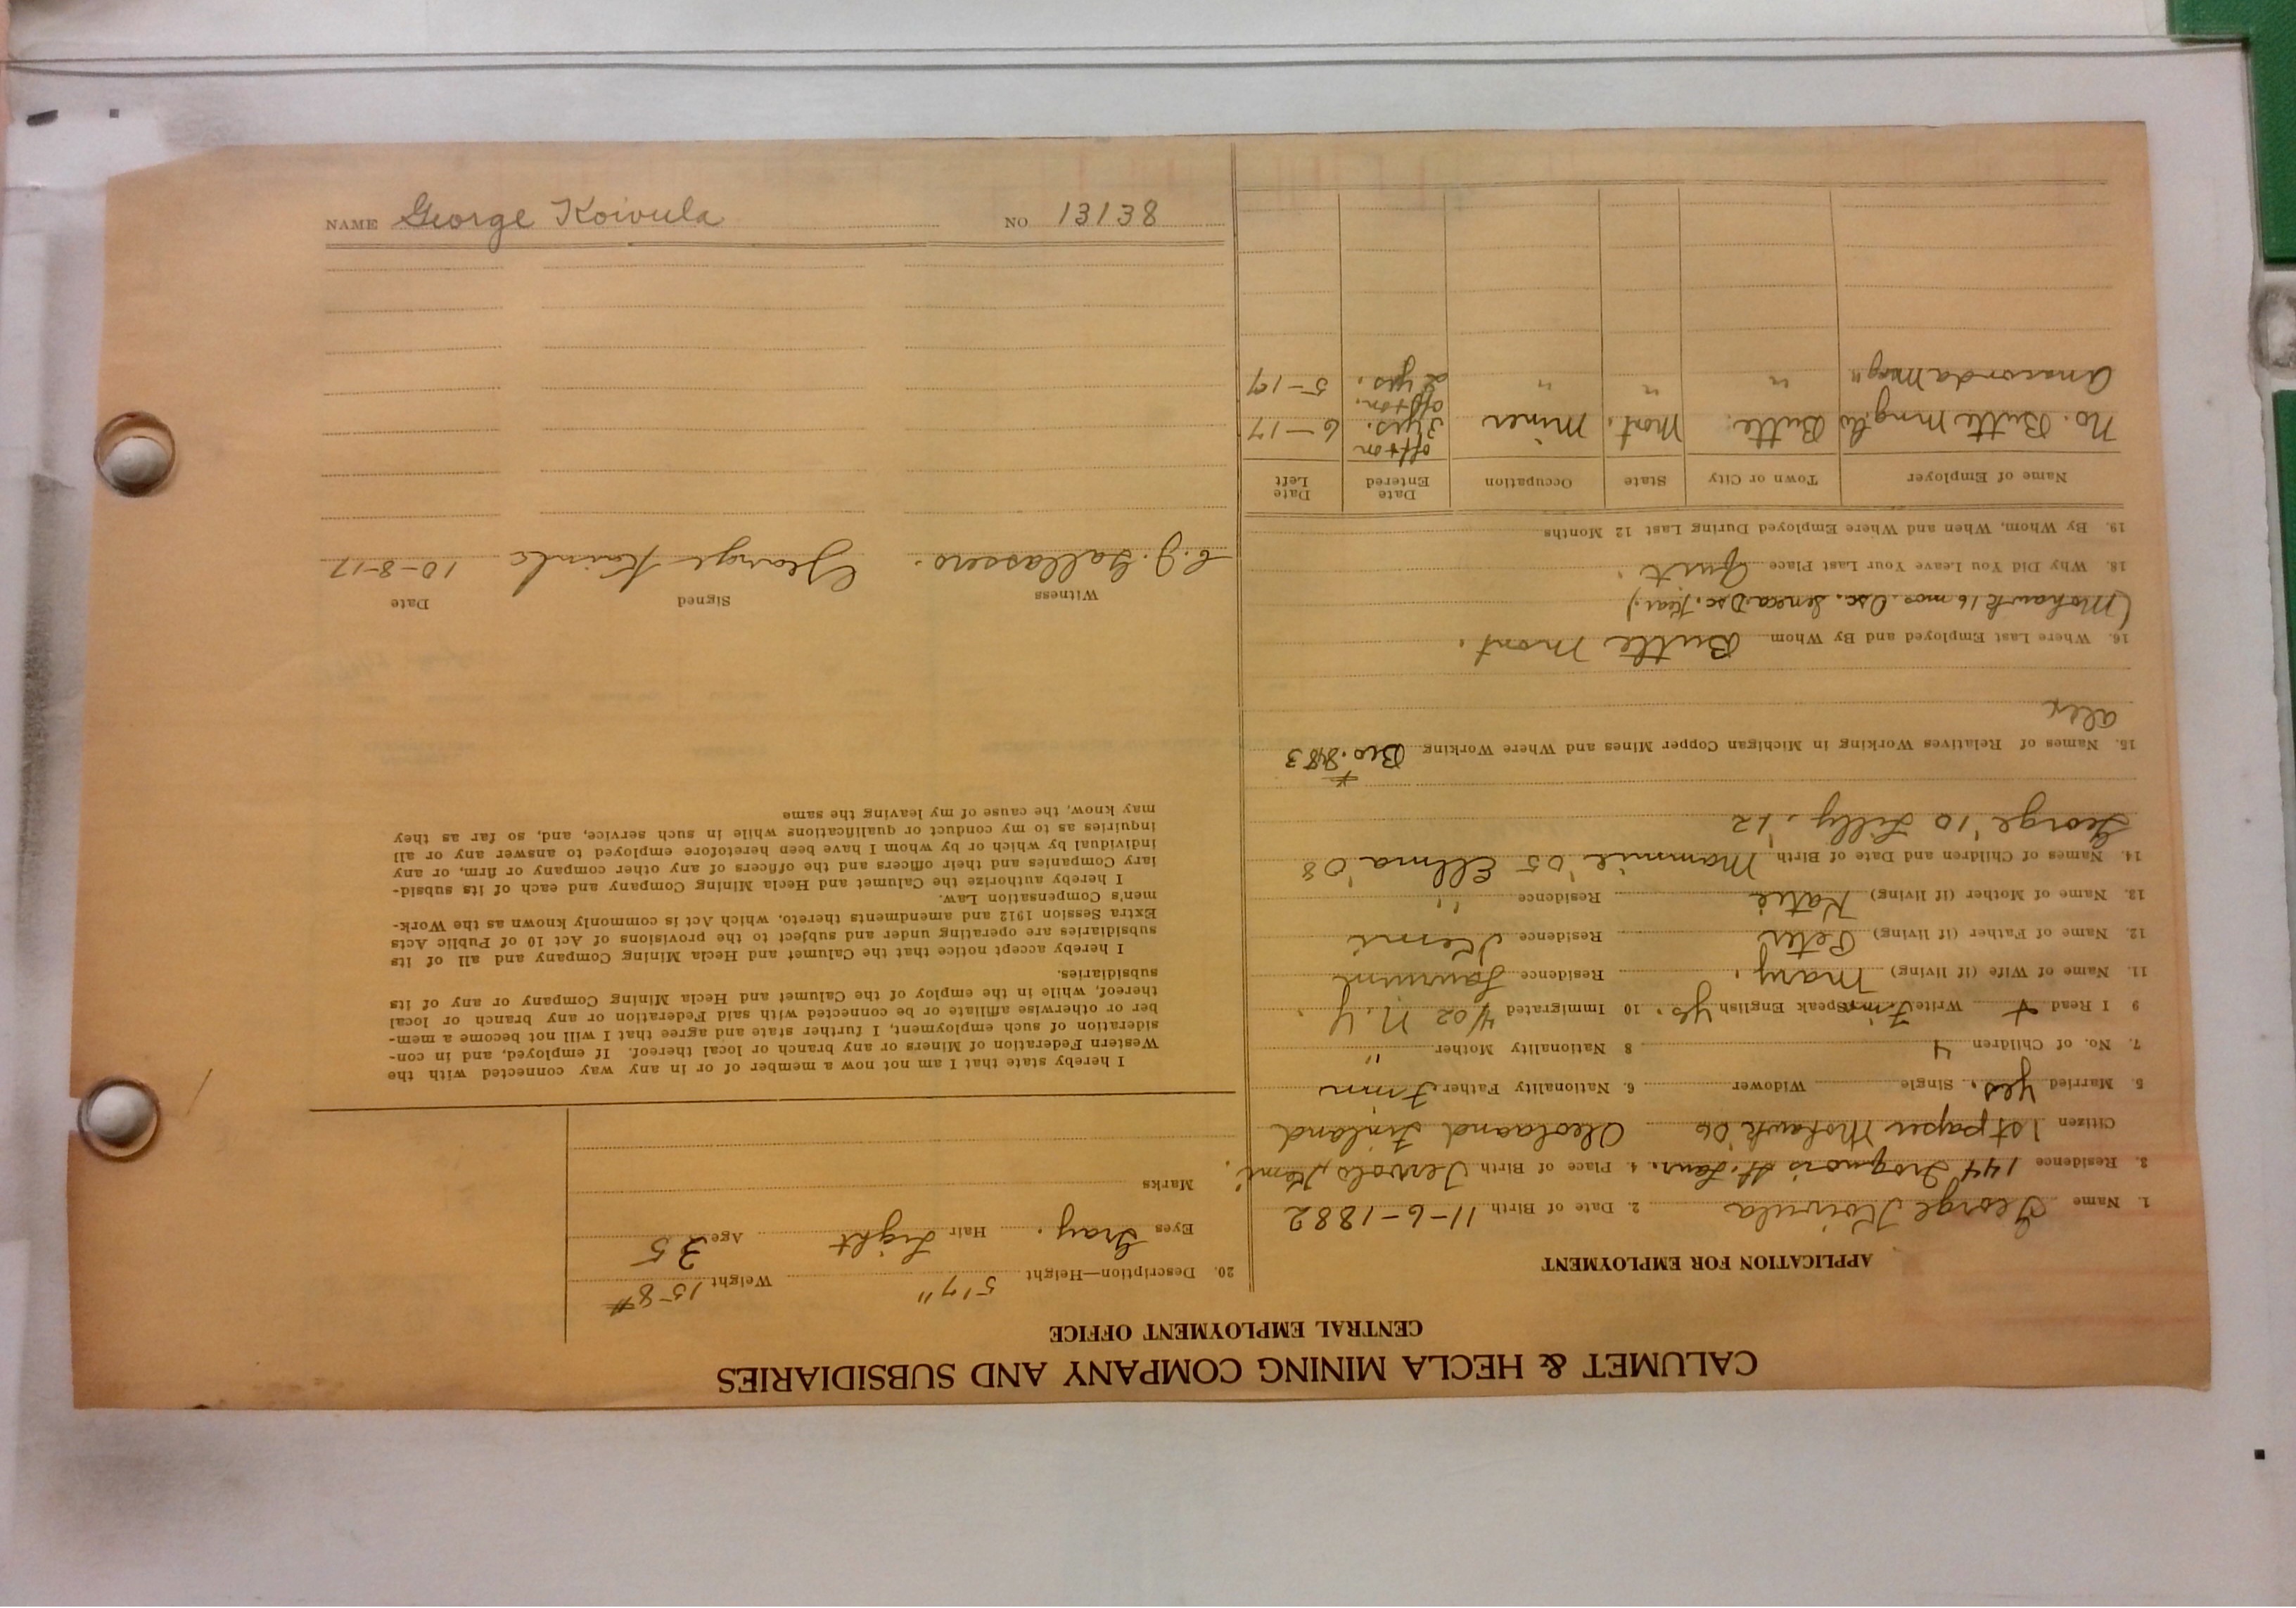 CALUMET & HECLA MINING COMPANY AND SUBSIDIARIES
CENTRAL EMPLOYMENT OFFICE
APPLICATION FOR EMPLOYMENT
1. Name George Koivula 2. Date of Birth 11-6-1882
3. Residence 144 Iroquois St. Laur. 4. Place of Birth Tervola, Kemi
Citizen 1st paper Mohawk 06 Finland
5. Married Yes. Single Widower 6. Nationality Father Finn
7. No. of Children 4 8 Nationality Mother "
9 I Read + Write Finn Speak English Yes. 10 Immigrated 4/02 N.Y.
11. Name of Wife (if living) Mary. Residence Laurium
12. Name of Father (if living) Peter Residence Kemi
13. Name of Mother (if living) Katie Residence "
14. Names of Children and Date of Birth Mammie '05 Elma '08
George '10 Lilly, '12
15. Names of Relatives Working in Michigan Copper Mines and Where Working Bro. #8483
alex
16. Where Last Employed and By Whom Butte Mont.
(Mohawk 16 mos. Osc. Seneca. Osc. Kear.)
18. Why Did You Leave Your Last Place Quit.
19. By Whom, When and Where Employed During Last 12 Months
Name of Employer Town or City State Occupation Date Entered Date Left
No. Butte Mng. Co Butte. Mont. Miner off+on 3 yrs. 6-17
Anaconda Mng " " " " off+on. 2 yrs. 5-17
20. Description—Height 5'7" Weight 158#
Eyes Gray. Hair Light Age 35
Marks
I hereby state that I am not now a member of or in any way connected with the
Western Federation of Miners or any branch or local thereof. If employed, and in con-
sideration of such employment, I further state and agree that I will not become a mem-
ber or otherwise affiliate or be connected with said Federation or any branch or local
thereof, while in the employ of the Calumet and Hecla Mining Company or any of its
subsidiaries.
I hereby accept notice that the Calumet and Hecla Mining Company and all of its
subsidiaries are operating under and subject to the provisions of Act 10 of Public Acts
Extra Session 1912 and amendments thereto, which Act is commonly known as the Work-
men's Compensation Law.
I hereby authorize the Calumet and Hecla Mining Company and each of its subsid-
iary Companies and their officers and the officers of any other company or firm, or any
individual by which or by whom I have been heretofore employed to answer any or all
inquiries as to my conduct or qualifications while in such service, and, so far as they
may know, the cause of my leaving the same
Witness Signed Date
George 10-8-17
NAME George Koivula NO 13138